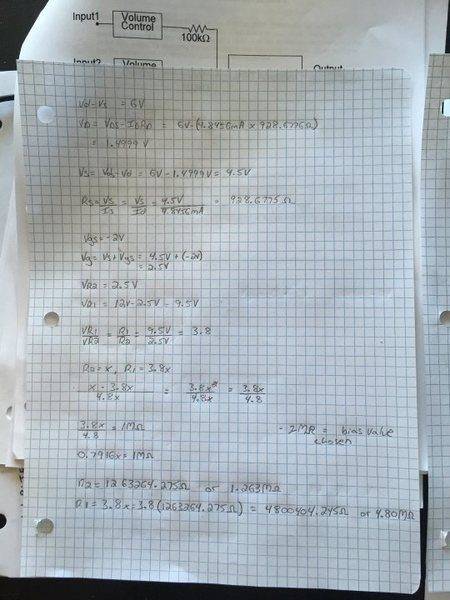 Input1
Volume
Control
100kΩ
Input2
Volume
Output
Vd-Vs = 6V
VD = VDS - IDRD = 6V-(4.8456mA x 928.6775Ω)
= 1.4999V
Vs = Vds - Vd = 6V - 1.4999V = 4.5V
Rs = Vs/Is = Vs/Id = 4.5V/4.8456mA = 928.6775Ω
Vgs = -2V
Vg = Vs + Vgs = 4.5V + (-2V)
= 2.5V
VR2 = 2.5V
VR1 = 12V - 2.5V = 9.5V
VR1/VR2 = R1/R2 = 9.5V/2.5V = 3.8
R2 = x, R1 = 3.8x
x · 3.8x/4.8x = 3.8x²/4.8x = 3.8x/4.8
3.8x/4.8 = 1MΩ
- 1MΩ = bias value
chosen
0.7916x = 1MΩ
R2 = 1263264.275Ω or 1.263MΩ
R1 = 3.8x = 3.8(1263264.275Ω) = 4800404.245Ω or 4.80MΩ